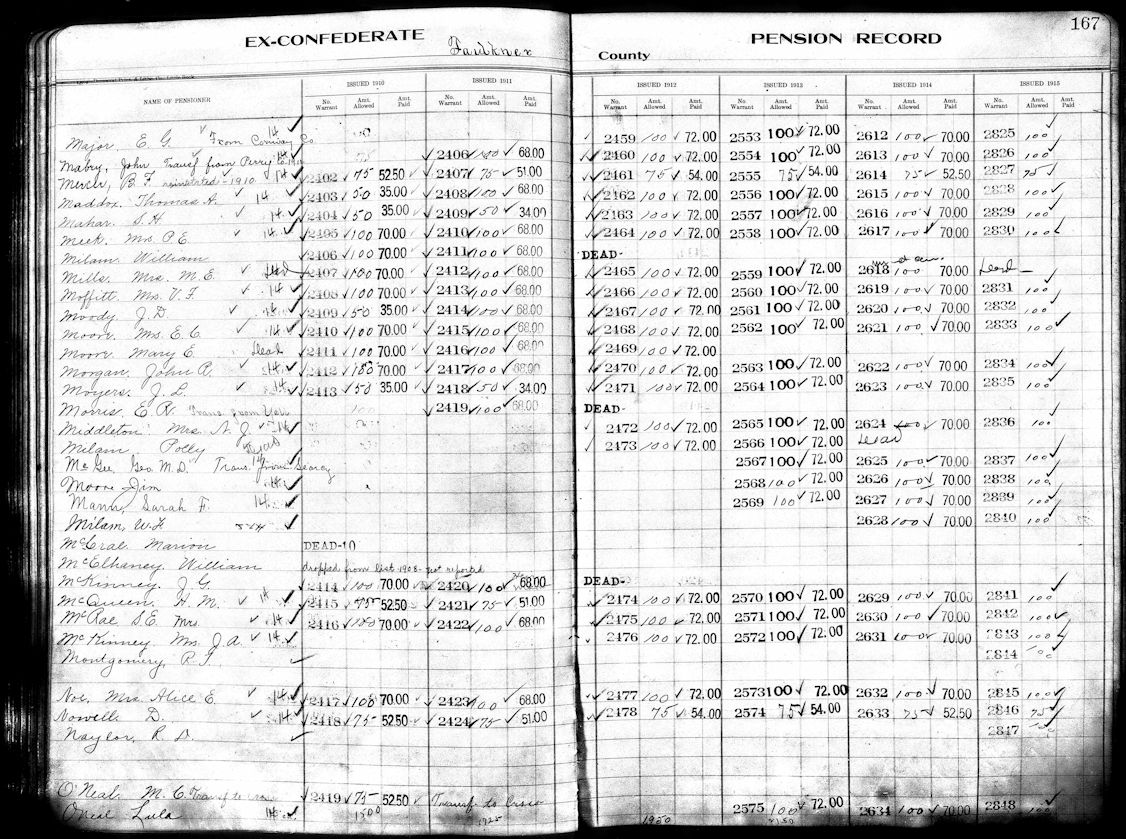 167
EX-CONFEDERATE Faulkner County PENSION RECORD
NAME OF PENSIONER ISSUED 1910 ISSUED 1911 ISSUED 1912 ISSUED 1913 ISSUED 1914 ISSUED 1915
No. Warrant Amt. Allowed Amt. Paid No. Warrant Amt. Allowed Amt. Paid No. Warrant Amt. Allowed Amt. Paid No. Warrant Amt. Allowed Amt. Paid No. Warrant Amt. Allowed Amt. Paid No. Warrant Amt. Allowed Amt. Paid
Major, E. G. From Conway Co 14 2459 100 72.00 2553 100 72.00 2612 100 70.00 2825 100
Mabry, John Transf from Perry Co 14 2406 100 68.00 2460 100 72.00 2554 100 72.00 2613 100 70.00 2826 100
Mercer, B. F. reinstated-1910 14 2402 75 52.50 2407 75 51.00 2461 75 54.00 2555 75 54.00 2614 75 52.50 2827 75
Maddox, Thomas A. 14 2403 50 35.00 2408 100 68.00 2462 100 72.00 2556 100 72.00 2615 100 70.00 2828 100
Mahar, S. H. 14 2404 50 35.00 2409 50 34.00 2463 100 72.00 2557 100 72.00 2616 100 70.00 2829 100
Meek, Mrs P. E. 14 2405 100 70.00 2410 100 68.00 2464 100 72.00 2558 100 72.00 2617 100 70.00 2830 100
Milam, William 2406 100 70.00 2411 100 68.00 DEAD-
Mills, Mrs. M. E. Dead 2407 100 70.00 2412 100 68.00 2465 100 72.00 2559 100 72.00 2618 100 70.00 Dead
Moffitt, Mrs. V. F. 14 2408 100 70.00 2413 100 68.00 2466 100 72.00 2560 100 72.00 2619 100 70.00 2831 100
Moody, J. D. 14 2409 50 35.00 2414 100 68.00 2467 100 72.00 2561 100 72.00 2620 100 70.00 2832 100
Moore, Mrs. E. C. 14 2410 100 70.00 2415 100 68.00 2468 100 72.00 2562 100 72.00 2621 100 70.00 2833 100
Moore, Mary E. Dead 2411 100 70.00 2416 100 68.00 2469 100 72.00
Morgan, John R. 14 2412 100 70.00 2417 100 68.00 2470 100 72.00 2563 100 72.00 2622 100 70.00 2834 100
Moyers, J. L. 14 2413 50 35.00 2418 50 34.00 2471 100 72.00 2564 100 72.00 2623 100 70.00 2835 100
Morris, E. R. Trans. from Yell 100 2419 100 68.00 DEAD
Middleton, Mrs. A. J. 14 2472 100 72.00 2565 100 72.00 2624 100 70.00 2836 100
Milam, Polly Dead 2473 100 72.00 2566 100 72.00 Dead
McGee, Geo. M. D. Trans. from Searcy 14 2567 100 72.00 2625 100 70.00 2837 100
Moore Jim 14 2568 100 72.00 2626 100 70.00 2838 100
Mann, Sarah F. 14 2569 100 72.00 2627 100 70.00 2839 100
Milam, W. F. 2628 100 70.00 2840 100
McCral, Marion DEAD-10
McElhaney, William dropped from list 1908-not reported
McKinney, J. G. 2414 100 70.00 2420 100 68.00 DEAD-
McQueen, H. M. 14 2415 75 52.50 2421 75 51.00 2474 100 72.00 2570 100 72.00 2629 100 70.00 2841 100
McRae, S. E. Mrs. 14 2416 100 70.00 2422 100 68.00 2475 100 72.00 2571 100 72.00 2630 100 70.00 2842 100
McKinney, Mrs. J. A. 14 2476 100 72.00 2572 100 72.00 2631 100 70.00 2843 100
Montgomery, R. F. 2844 100
Noe, Mrs. Alice E. 14 2417 100 70.00 2423 100 68.00 2477 100 72.00 2573 100 72.00 2632 100 70.00 2845 100
Nowell, D. 14 2418 75 52.50 2424 75 51.00 2478 75 54.00 2574 75 54.00 2633 75 52.50 2846 75
Naylor, R. D. 2847 100
O'Neal, M. C. 2419 75 52.50 Transf. to
O'neal Lula 14 2575 100 72.00 2634 100 70.00 2848 100